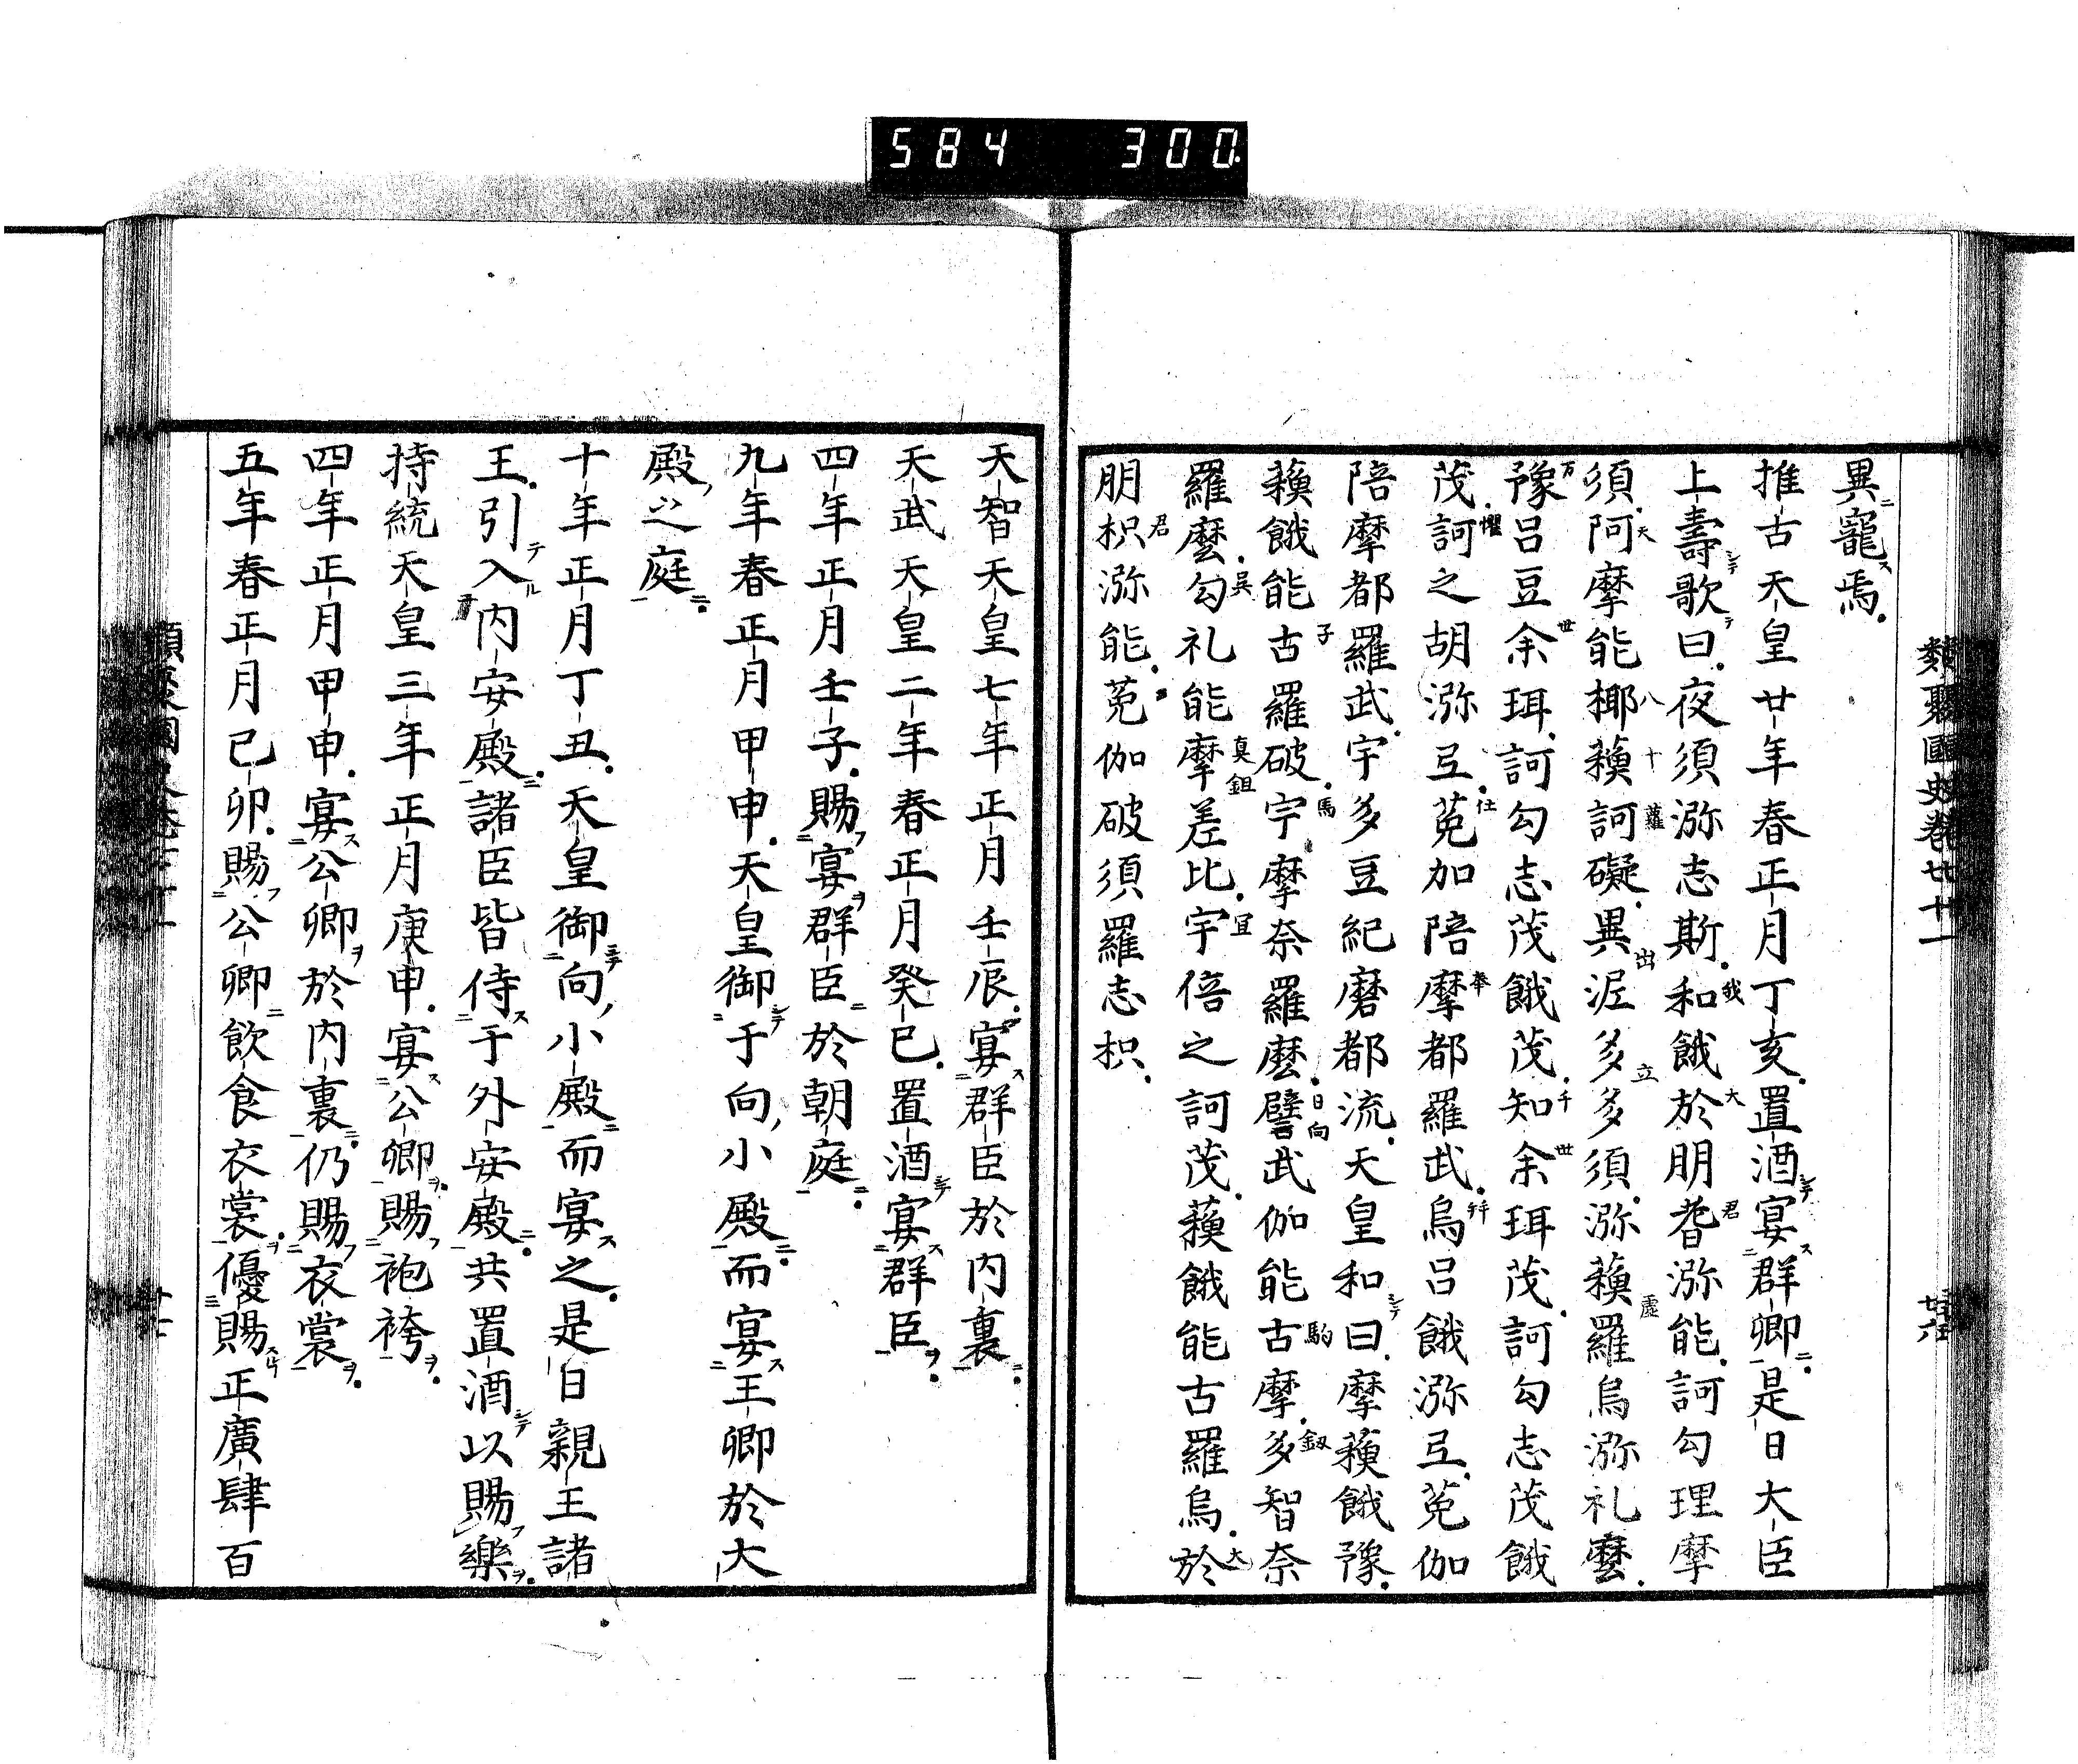 584 300
異寵焉
推古天皇廿年春正月丁亥置酒宴群卿是日大臣
上壽歌曰夜須弥志斯和餓於朋耆弥能訶勾理摩
須阿摩能椰蘓訶礙異泥多多須弥蘓羅烏弥礼麼
豫呂豆余珥訶勾志茂餓茂知余珥茂訶勾志茂餓
茂訶之胡弥弖菟加陪摩都羅武烏呂餓弥弖菟伽
陪摩都羅武宇多豆紀磨都流天皇和曰摩蘓餓豫
蘓餓能古羅破宇摩奈羅麼譬武伽能古摩多智奈
羅麼勾礼能摩差比宇倍之訶茂蘓餓能古羅烏於
朋枳弥能菟伽破須羅志枳
天智天皇七年正月壬辰宴群臣於内裏
天武天皇二年春正月癸巳置酒宴群臣
四年正月壬子賜宴群臣於朝庭
九年春正月甲申天皇御于向小殿而宴王卿於大
殿之庭
十年正月丁丑天皇御向小殿而宴之是日親王諸
王引入内安殿諸臣皆侍于外安殿共置酒以賜樂
持統天皇三年正月庚申宴公卿賜袍袴
四年正月甲申宴公卿於内裏仍賜衣裳
五年春正月己卯賜公卿飲食衣裳優賜正廣肆百